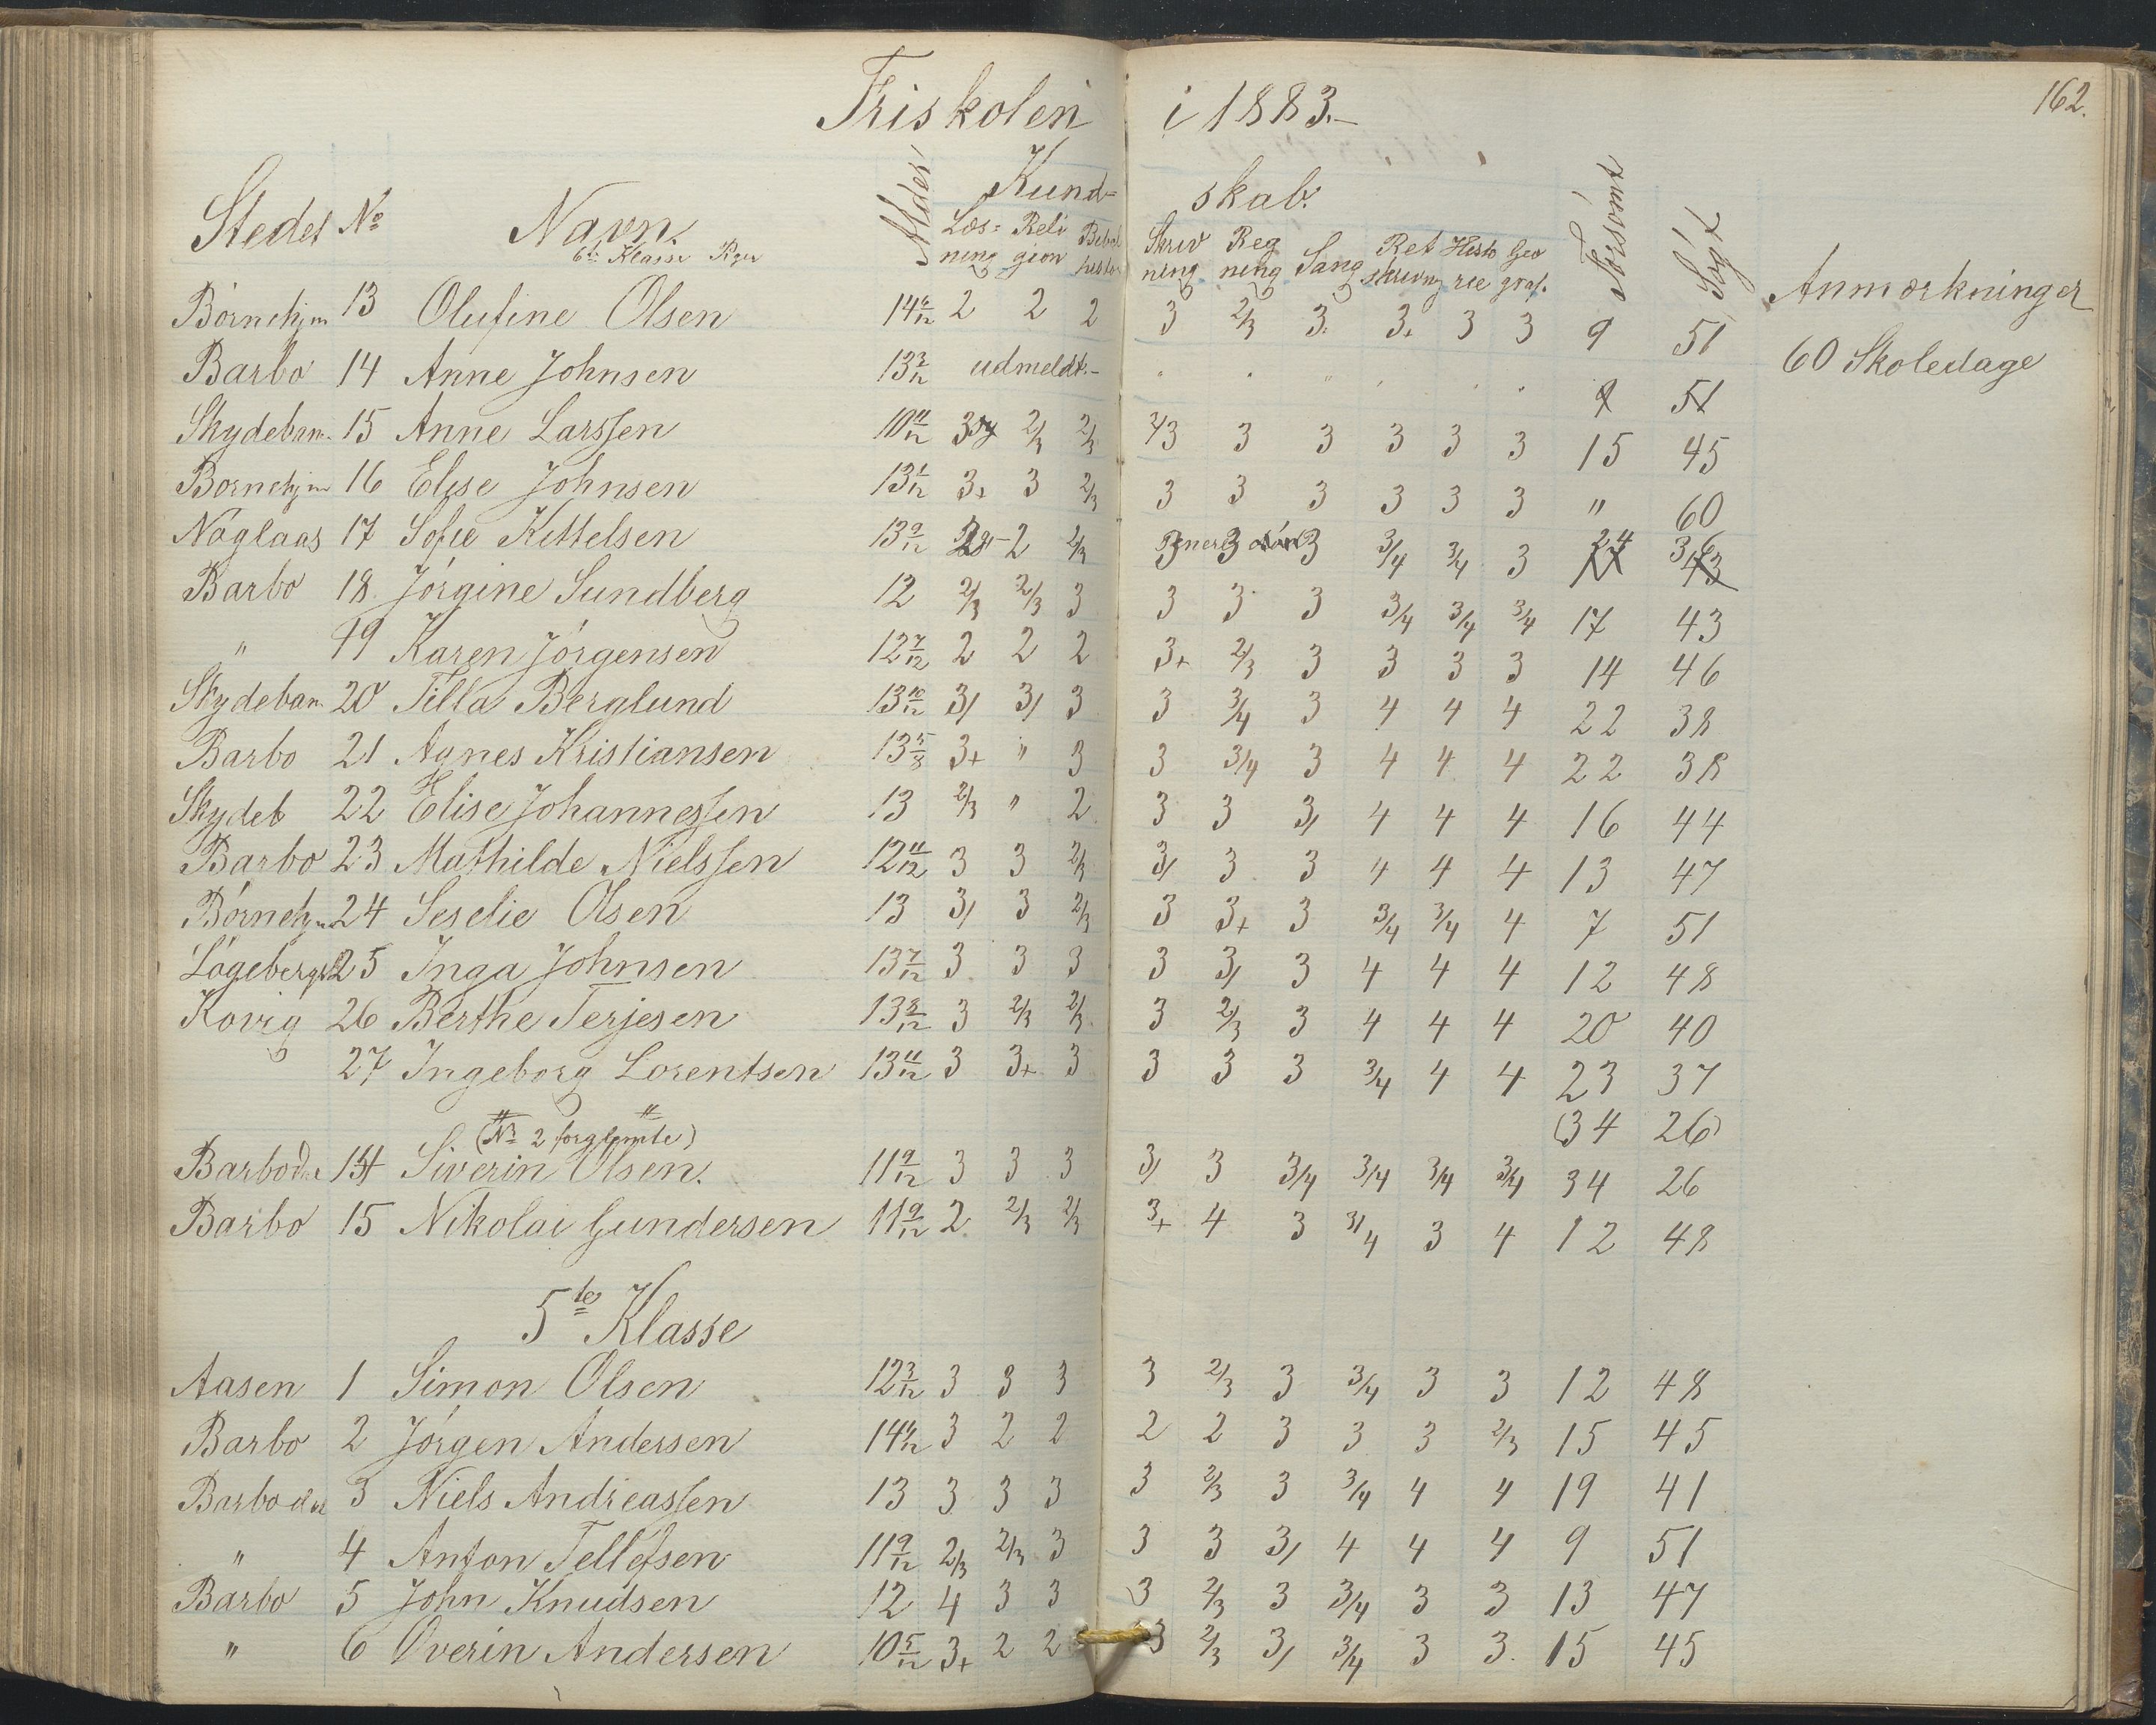 162.
Friskolen i 1883.-
Stedet No Navn. Alder Kund= skab. Forsömt Sögt Anmærkninger
6te Klasse Læs= ning Reli gion Bibel histor Skriv ning Reg ning Sang Ret skrivng Histo rie Geo graf.
Börnehjm 13 Olufine Olsen 14 6/12 2 2 2 3 2/3 3. 3+ 3 3 9 51 60 Skoledage
Barbo 14 Anne Johnsen 13 3/12 udmeldt.- 9 51
Skydeban. 15 Anne Larssen 10 11/12 3 2/3 2/3 2/3 3 3 3 3 3 15 45
Börnehjm 16 Elise Johnsen 13 1/12 3+ 3 2/3 3 3 3 3 3 3 " 60
Nöglaas 17 Sofie Kittelsen 13 9/12 2 2/3 3 3 3 3/4 3/4 3 24 36
Barbo 18. Jörgine Sundberg 12 2/3 2/3 3 3 3 3 3/4 3/4 3/4 17 43
" 19 Karen Jörgensen 12 7/12 2 2 2 3+ 2/3 3 3 3 3 14 46
Skydeban. 20 Tilla Berglund 13 10/12 3/ 3/ 3 3 3/4 3 4 4 4 22 38
Barbo 21 Agnes Kristiansen 13 5/3 3+ " 3 3 3/4 3 4 4 4 22 38
Skydeb 22 Elise Johannessen 13 2/3 " 2 3 3 3/ 4 4 4 16 44
Barbo 23 Mathilde Nielssen 12 11/12 3 3 2/3 3/ 3 3 4 4 4 13 47
Börnehjm 24 Seselie Olsen 13 3/ 3 2/3 3 3+ 3 3/4 3/4 4 7 51
Lögebergsk 25 Inga Johnsen 13 7/12 3 3 3 3 3/ 3 4 4 4 12 48
Kovig 26 Berthe Terjesen 13 8/12 3 2/3 2/3 3 2/3 3 4 4 4 20 40
27 Ingeborg Lorentsen 13 11/12 3 3+ 3 3 3 3 3/4 4 4 23 37
(No 2 forglemte) (34 26)
Barbodal 14 Siverin Olsen. 11 9/12 3 3 3 3/ 3 3/4 3/4 3/4 3/4 34 26
Barbo 15 Nikolai Gundersen 11 9/12 2 2/3 2/3 3+ 4 3 3/4 3 4 12 48
5te Klasse
Aasen 1 Simon Olsen 12 3/12 3 3 3 3 2/3 3 3/4 3 3 12 48
Barbo 2 Jörgen Andersen 14 4/12 3 2 2 2 2 3 3 3 2/3 15 45
Barbodal 3 Niels Andreassen 13 3 3 3 3 2/3 3 3/4 4 4 19 41
" 4 Anton Tellefsen 11 9/12 2/3 2/3 3 3 3 3/ 4 4 4 9 51
Barbo 5 John Knudsen 12 4 3 3 3 2/3 3 3/4 3 3 13 47
" 6 Overin Andersen 10 5/12 3+ 2 2 3 2/3 3/ 3/4 3 3. 15 45